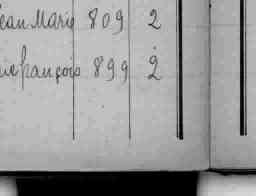 Jean Marie 809 2
rie françois 899 2